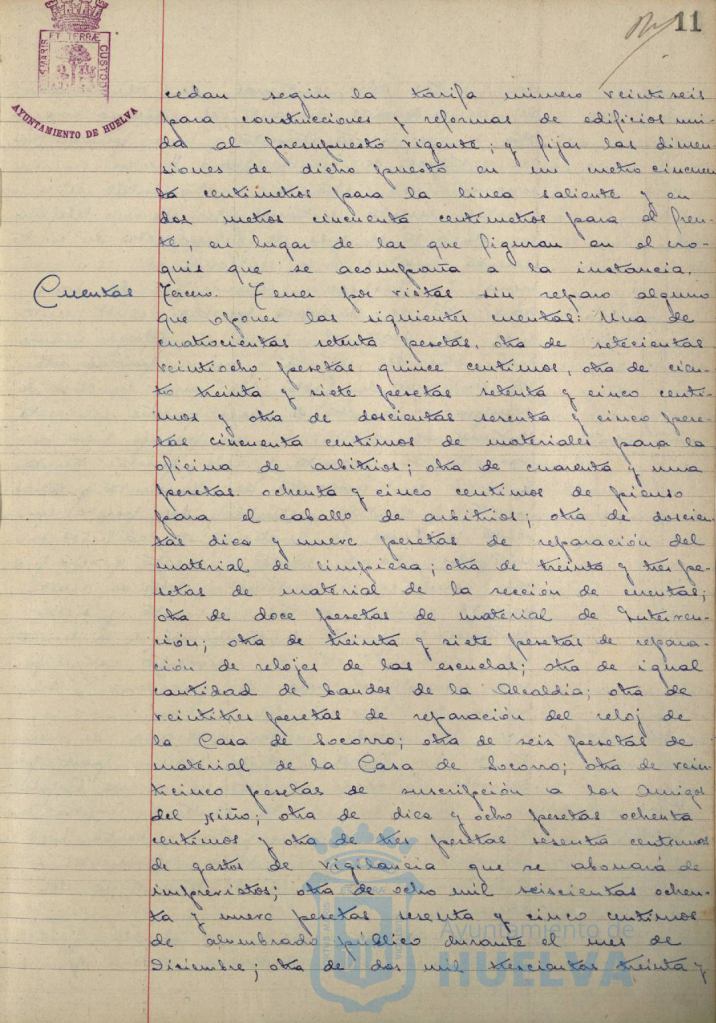 11
MARIS ET TERRÆ CUSTODI
AYUNTAMIENTO DE HUELVA
cedan según la tarifa número veintiseis
para construcciones y reformas de edificios uni-
da al presupuesto vigente; y fijar las dimen-
siones de dicho puesto en un metro cincuen
ta centimetros para la linea saliente y en
dos metros cincuenta centimetros para el fren-
te, en lugar de las que figuran en el cro-
quis que se acompaña a la instancia.
Cuentas
Tercero. Tener por vistas sin reparo alguno
que oponer las siguientes cuentas: Una de
cuatrocientas setenta pesetas, otra de setecientas
veintiocho pesetas quince centimos, otra de cien-
to treinta y siete pesetas setenta y cinco centi-
mos y otra de doscientas sesenta y cinco pese-
tas cincuenta centimos de materiales para la
oficina de arbitrios; otra de cuarenta y una
pesetas ochenta y cinco centimos de pienso
para el caballo de arbitrios; otra de doscien-
tas diez y nueve pesetas de reparación del
material de limpieza; otra de treinta y tres pe-
setas de material de la sección de cuentas;
otra de doce pesetas de material de Interven-
ción; otra de treinta y siete pesetas de repara-
ción de relojes de las escuelas; otra de igual
cantidad de bandos de la Alcaldía; otra de
veintitres pesetas de reparación del reloj de
la Casa de Socorro; otra de seis pesetas de
material de la Casa de Socorro; otra de vein
ticinco pesetas de suscripción a los Amigos
del niño; otra de diez y ocho pesetas ochenta
centimos y otra de tres pesetas sesenta centimos
de gastos de vigilancia que se abonará de
imprevistos; otra de ocho mil seiscientas ochen-
ta y nueve pesetas sesenta y cinco centimos
de alumbrado público durante el mes de
Diciembre; otra de dos mil trescientas treinta y
Ayuntamiento de
HUELVA